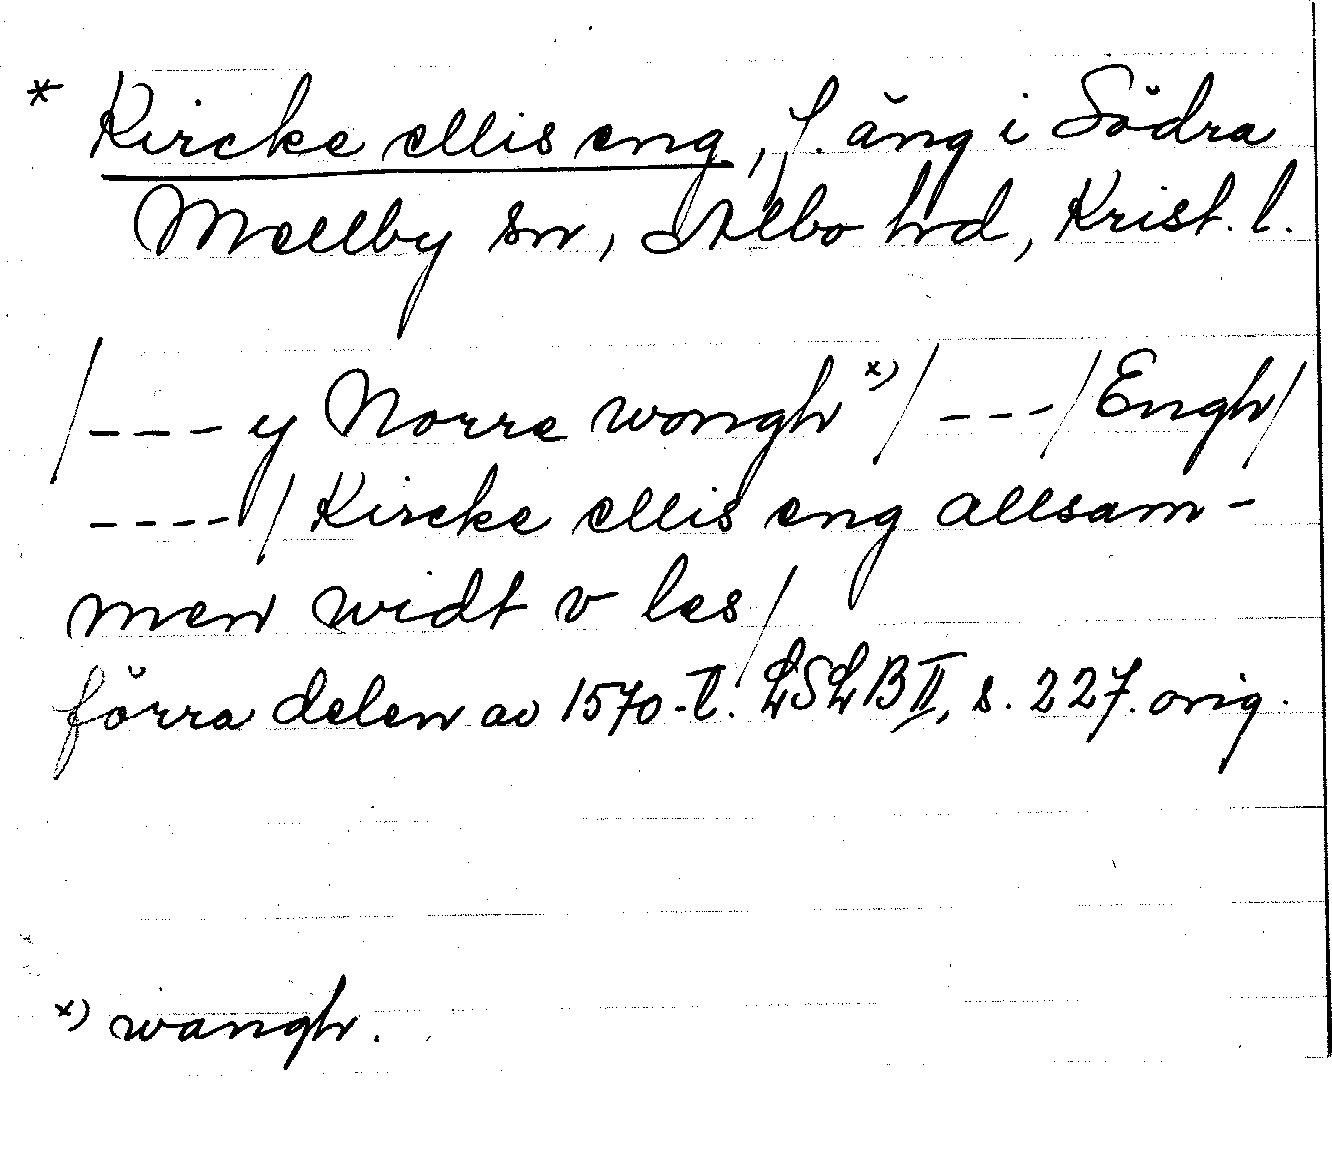 * Kircke ellis eng, f. äng i Södra
Mellby sn, Albo hd, Krist. l.
/ - - - y Norre wongh x) / - - - / Engh /
- - - - / Kircke ellis eng allsam-
men widt v les /
förra delen av 1570-t. LSLB II, s. 227. orig.
x) wangh.